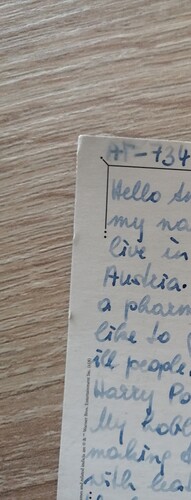 AT-734
Hello
my na
live in
Austria.
a pharm
like to
ill people,
Harry Po
My hobb
making
with